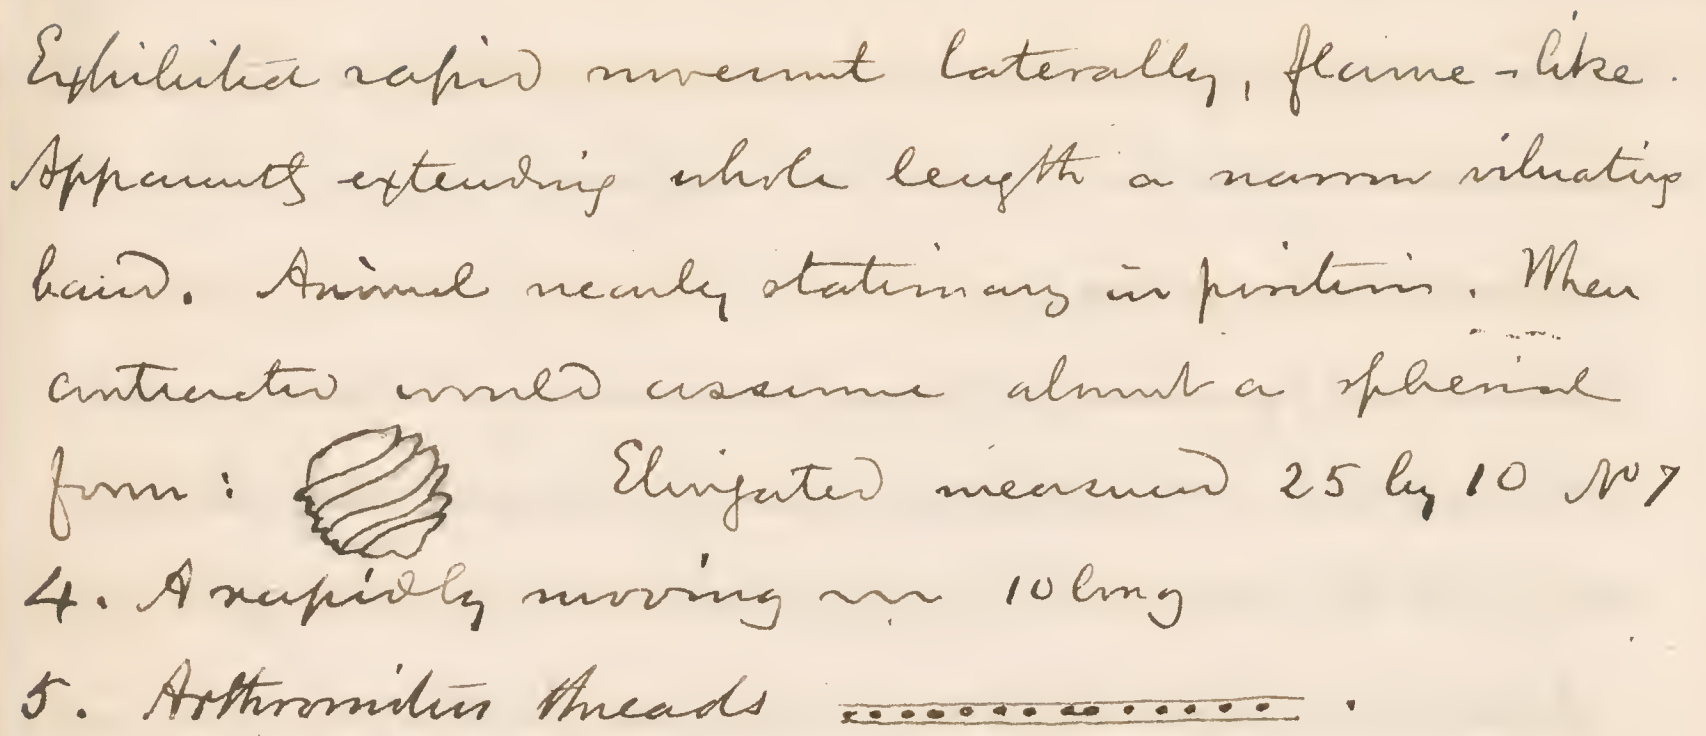 Exhibited rapid movement laterally, flame-like.
Apparently extending whole length a narrow vibrating
band. Animal nearly stationary in position. When
contracted would assume almost a spherical
form: Elongated measured 25 by 10 No 7
4. A rapidly moving 10 long
5. Arthromitus threads